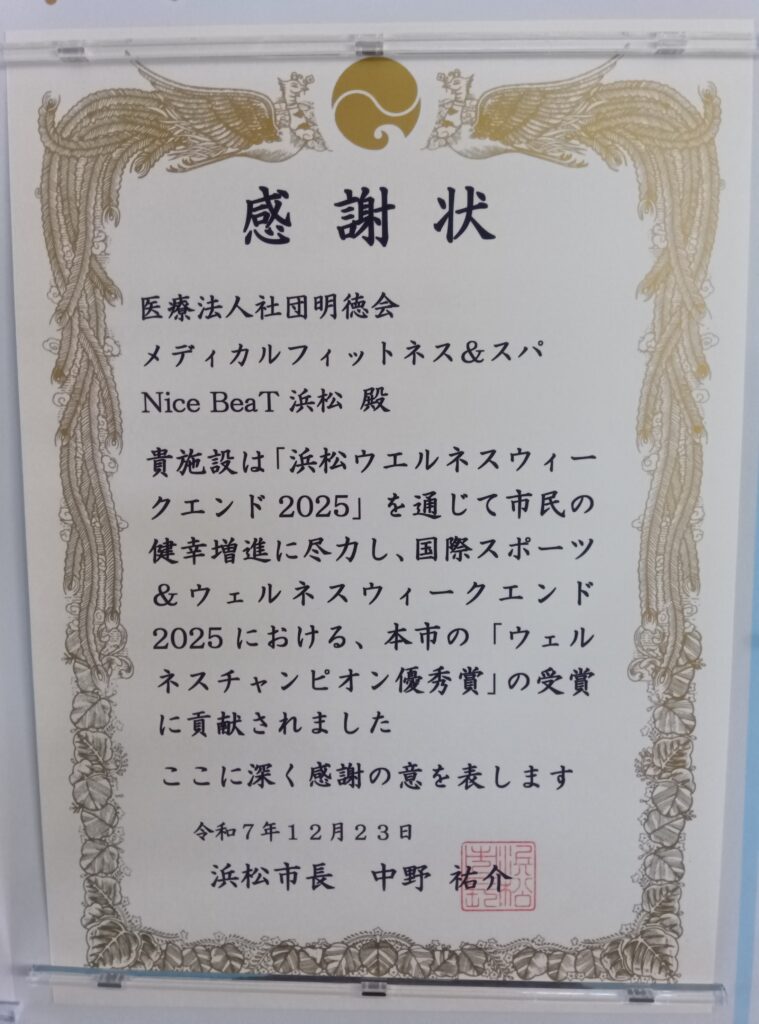 感謝状
医療法人社団明徳会
メディカルフィットネス&スパ
Nice BeaT 浜松 殿
貴施設は「浜松ウエルネスウィー
クエンド 2025」を通じて市民の
健幸増進に尽力し、国際スポーツ
&ウェルネスウィークエンド
2025 における、本市の「ウェル
ネスチャンピオン優秀賞」の受賞
に貢献されました
ここに深く感謝の意を表します
令和７年１２月２３日
浜松市長 中野 祐介